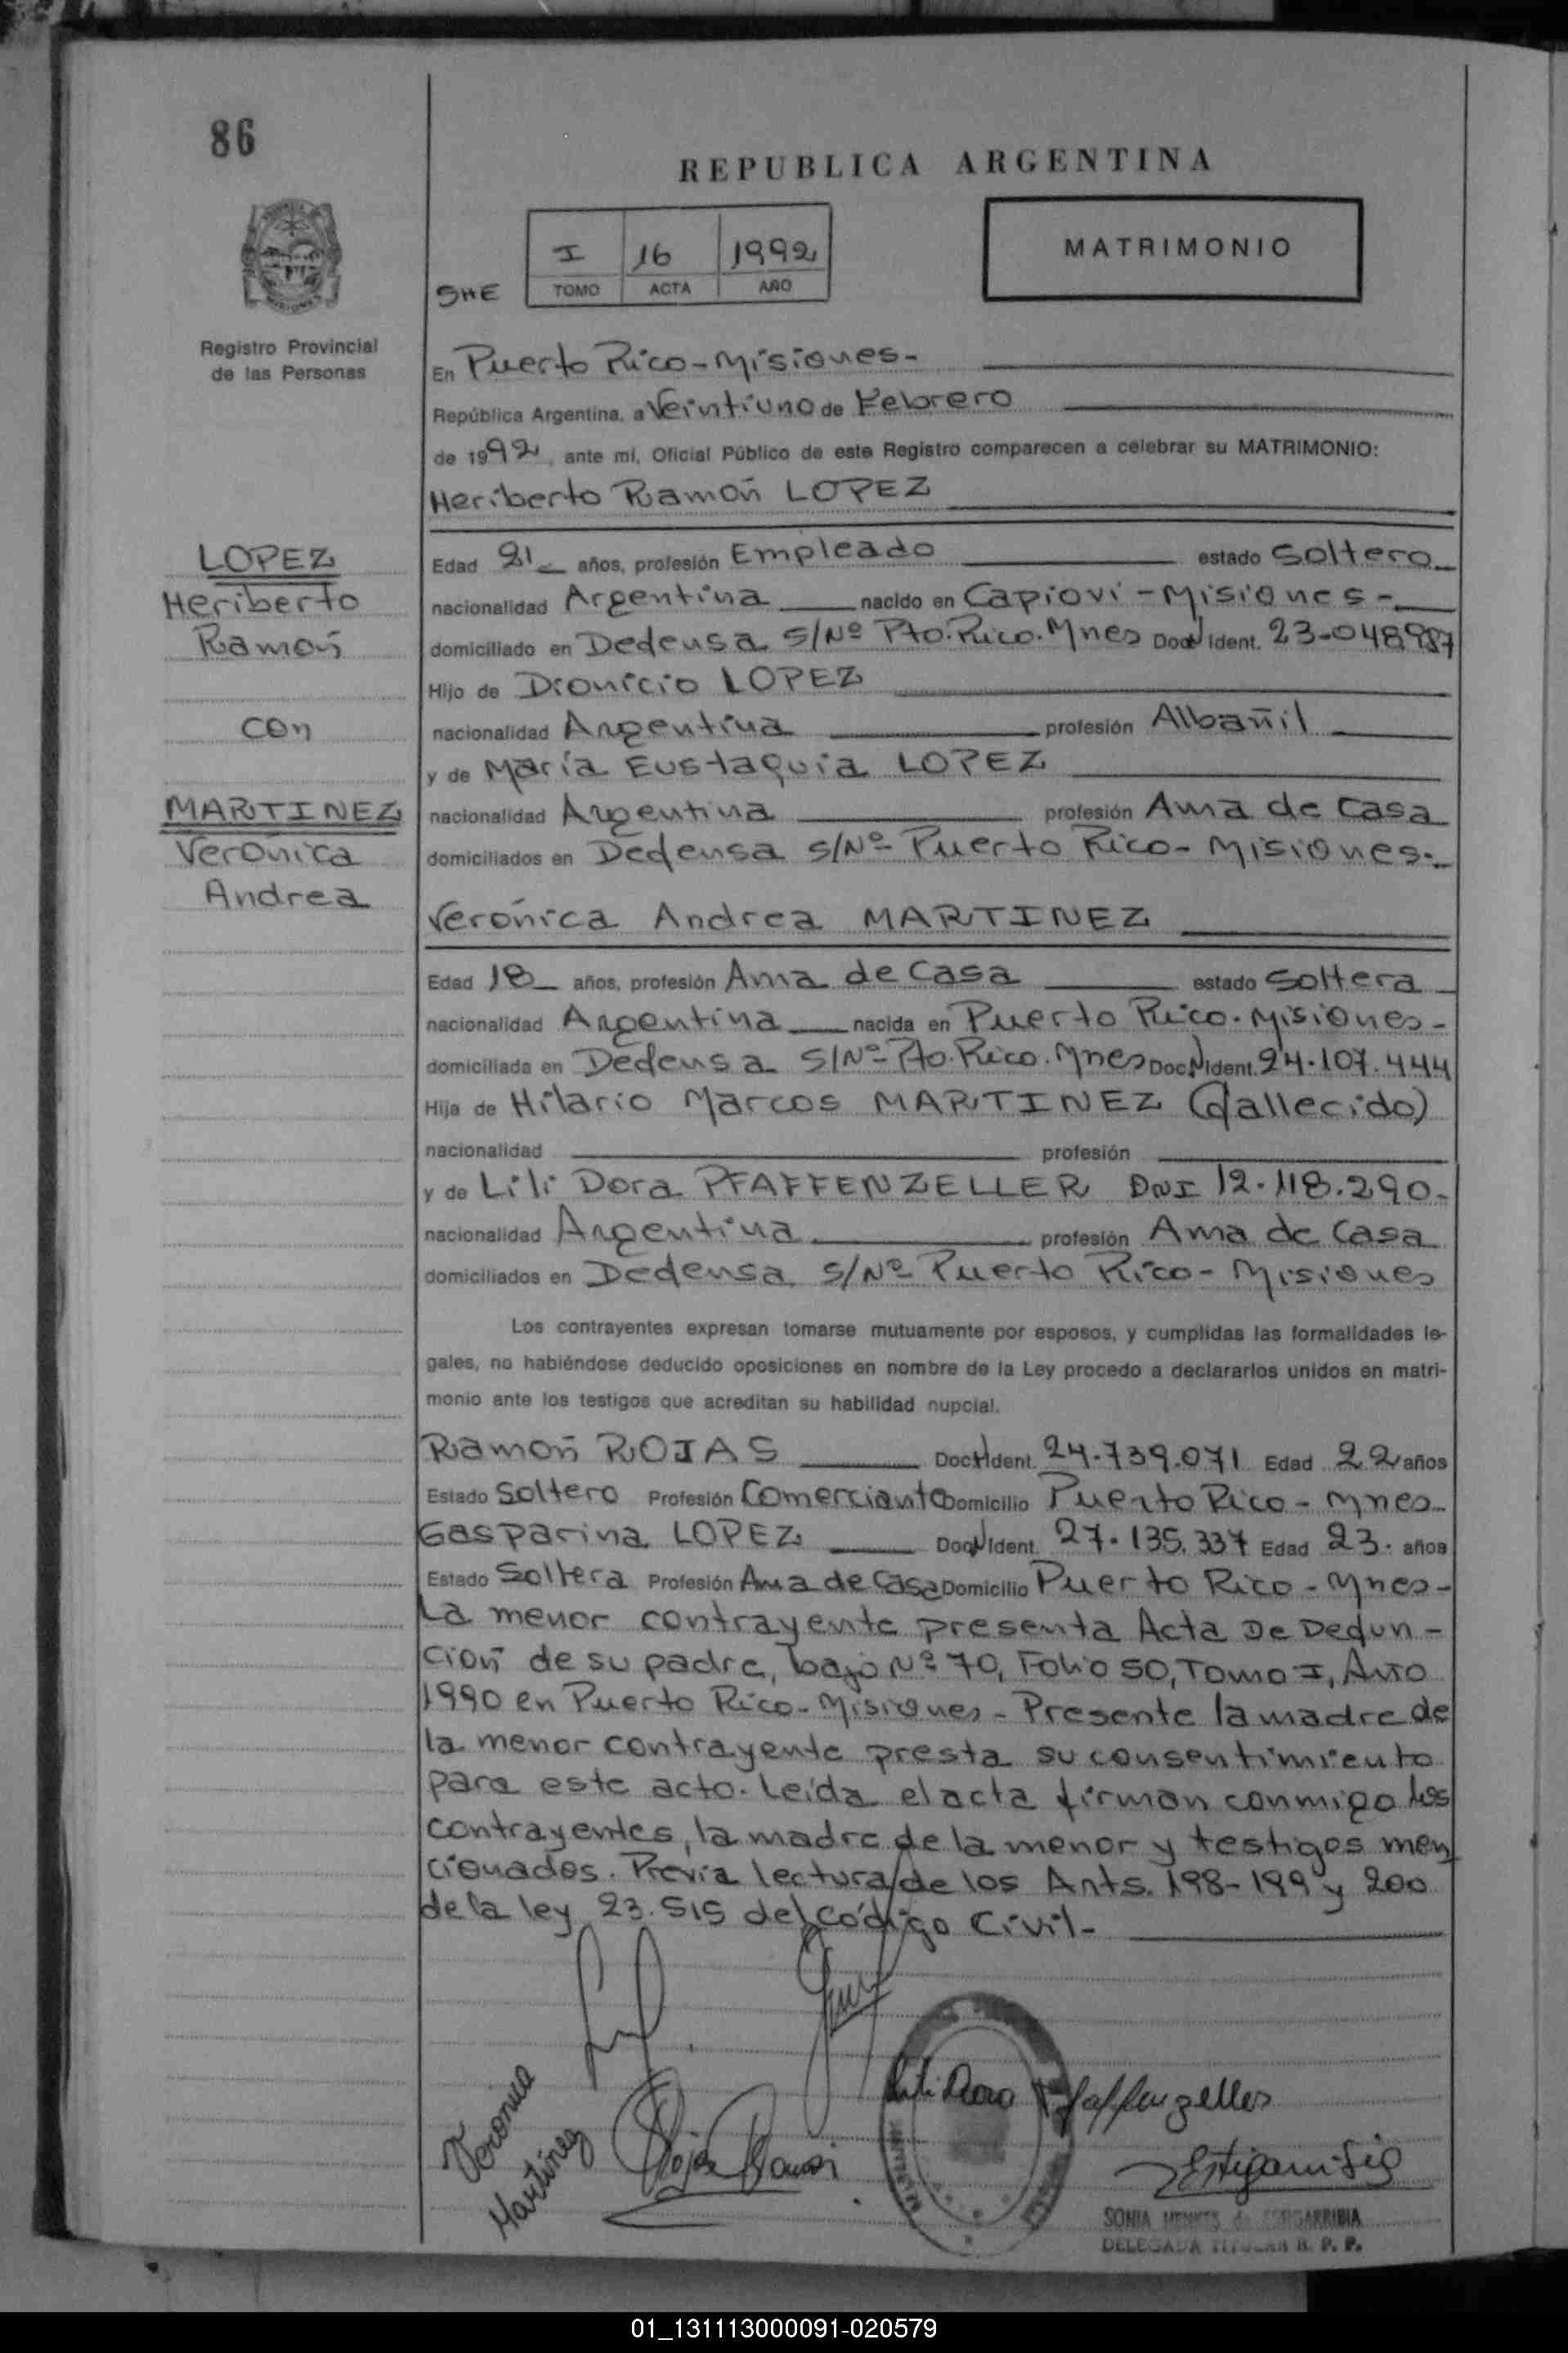 86
REPUBLICA ARGENTINA
I 16 1992
TOMO ACTA AÑO
SHE
MATRIMONIO
Registro Provincial
de las Personas
En Puerto Rico-Misiones-
República Argentina, a Veintiuno de Febrero
de 1992, ante mi, Oficial Público de este Registro comparecen a celebrar su MATRIMONIO:
Heriberto Ramón LOPEZ
LOPEZ
Heriberto
Ramón
con
MARTINEZ
Verónica
Andrea
Edad 21 años, profesión Empleado estado Soltero
nacionalidad Argentina nacido en Capioví-Misiones-
domiciliado en Dedensa S/Nº Pto.Rico.Mnes Doc N Ident. 23-048987
Hijo de Dionicio LOPEZ
nacionalidad Argentina profesión Albañil
y de María Eustaquia LOPEZ
nacionalidad Argentina profesión Ama de Casa
domiciliados en Dedensa S/Nº Puerto Rico-Misiones-
Verónica Andrea MARTINEZ
Edad 18 años, profesión Ama de Casa estado Soltera
nacionalidad Argentina nacida en Puerto Rico-Misiones-
domiciliada en Dedensa S/Nº Pto.Rico.Mnes Doc N Ident. 24.107.444
Hija de Hilario Marcos MARTINEZ (fallecido)
nacionalidad profesión
y de Lili Dora PFAFFENZELLER DNI 12.118.290-
nacionalidad Argentina profesión Ama de Casa
domiciliados en Dedensa S/Nº Puerto Rico-Misiones
Los contrayentes expresan tomarse mutuamente por esposos, y cumplidas las formalidades le-
gales, no habiéndose deducido oposiciones en nombre de la Ley procedo a declararlos unidos en matri-
monio ante los testigos que acreditan su habilidad nupcial.
Ramón ROJAS Doc N Ident. 24.739.071 Edad 22 años
Estado Soltero Profesión Comerciante Domicilio Puerto Rico-Mnes-
Gasparina LOPEZ Doc N Ident. 27.135.337 Edad 23. años
Estado Soltera Profesión Ama de Casa Domicilio Puerto Rico-Mnes-
La menor contrayente presenta Acta De Defun-
ción de su padre, bajo Nº 70, Folio 50, Tomo I, Año
1990 en Puerto Rico-Misiones- Presente la madre de
la menor contrayente presta su consentimiento
para este acto. Leída el acta firman conmigo los
contrayentes, la madre de la menor y testigos men
cionados. Previa lectura de los Arts. 198-199 y 200
de la ley 23.515 del código Civil-
Veronica
Martinez
Rojas Ramon
Lili Dora Pfaffenzeller
SONIA de
DELEGADA TITULAR R. P. P.
01_131113000091-020579